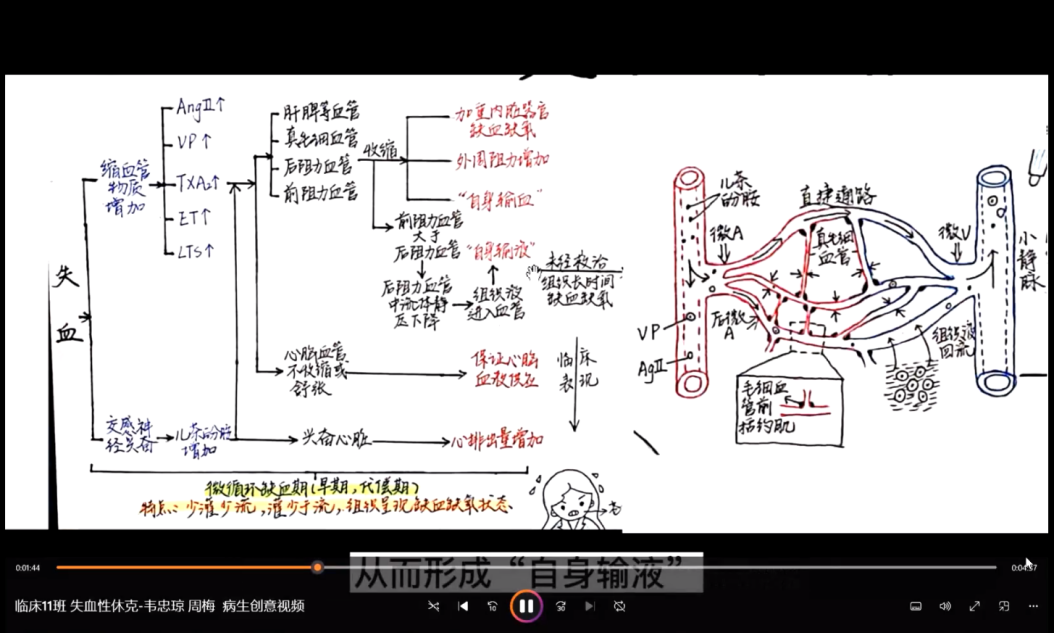 AngⅡ↑
VP↑
TXA₂↑
ET↑
LTS↑
缩血管
物质
增加
失
血
交感神
经兴奋
儿茶酚胺
增加
肝脾等血管
真毛细血管
后阻力血管
前阻力血管
收缩
加重内脏器官
缺血缺氧
外周阻力增加
“自身输血”
前阻力血管
大于
后阻力血管
“自身输液”
后阻力血管
中流体静
压下降
组织液
进入血管
未经救治
组织长时间
缺血缺氧
临床
表现
心脑血管
不收缩或
舒张
保证心脑
血液供应
兴奋心脏
心排出量增加
微循环缺血期(早期,代偿期)
特点:少灌少流,灌少于流,组织呈现缺血缺氧状态.
儿茶
酚胺
直捷通路
微A
真毛细
血管
微V
小
静
脉
后微
A
VP
AgⅡ
组织液
回流
毛细血
管前
括约肌
从而形成“自身输液”
0:01:44
临床11班 失血性休克-韦忠琼 周梅 病生创意视频
10
30